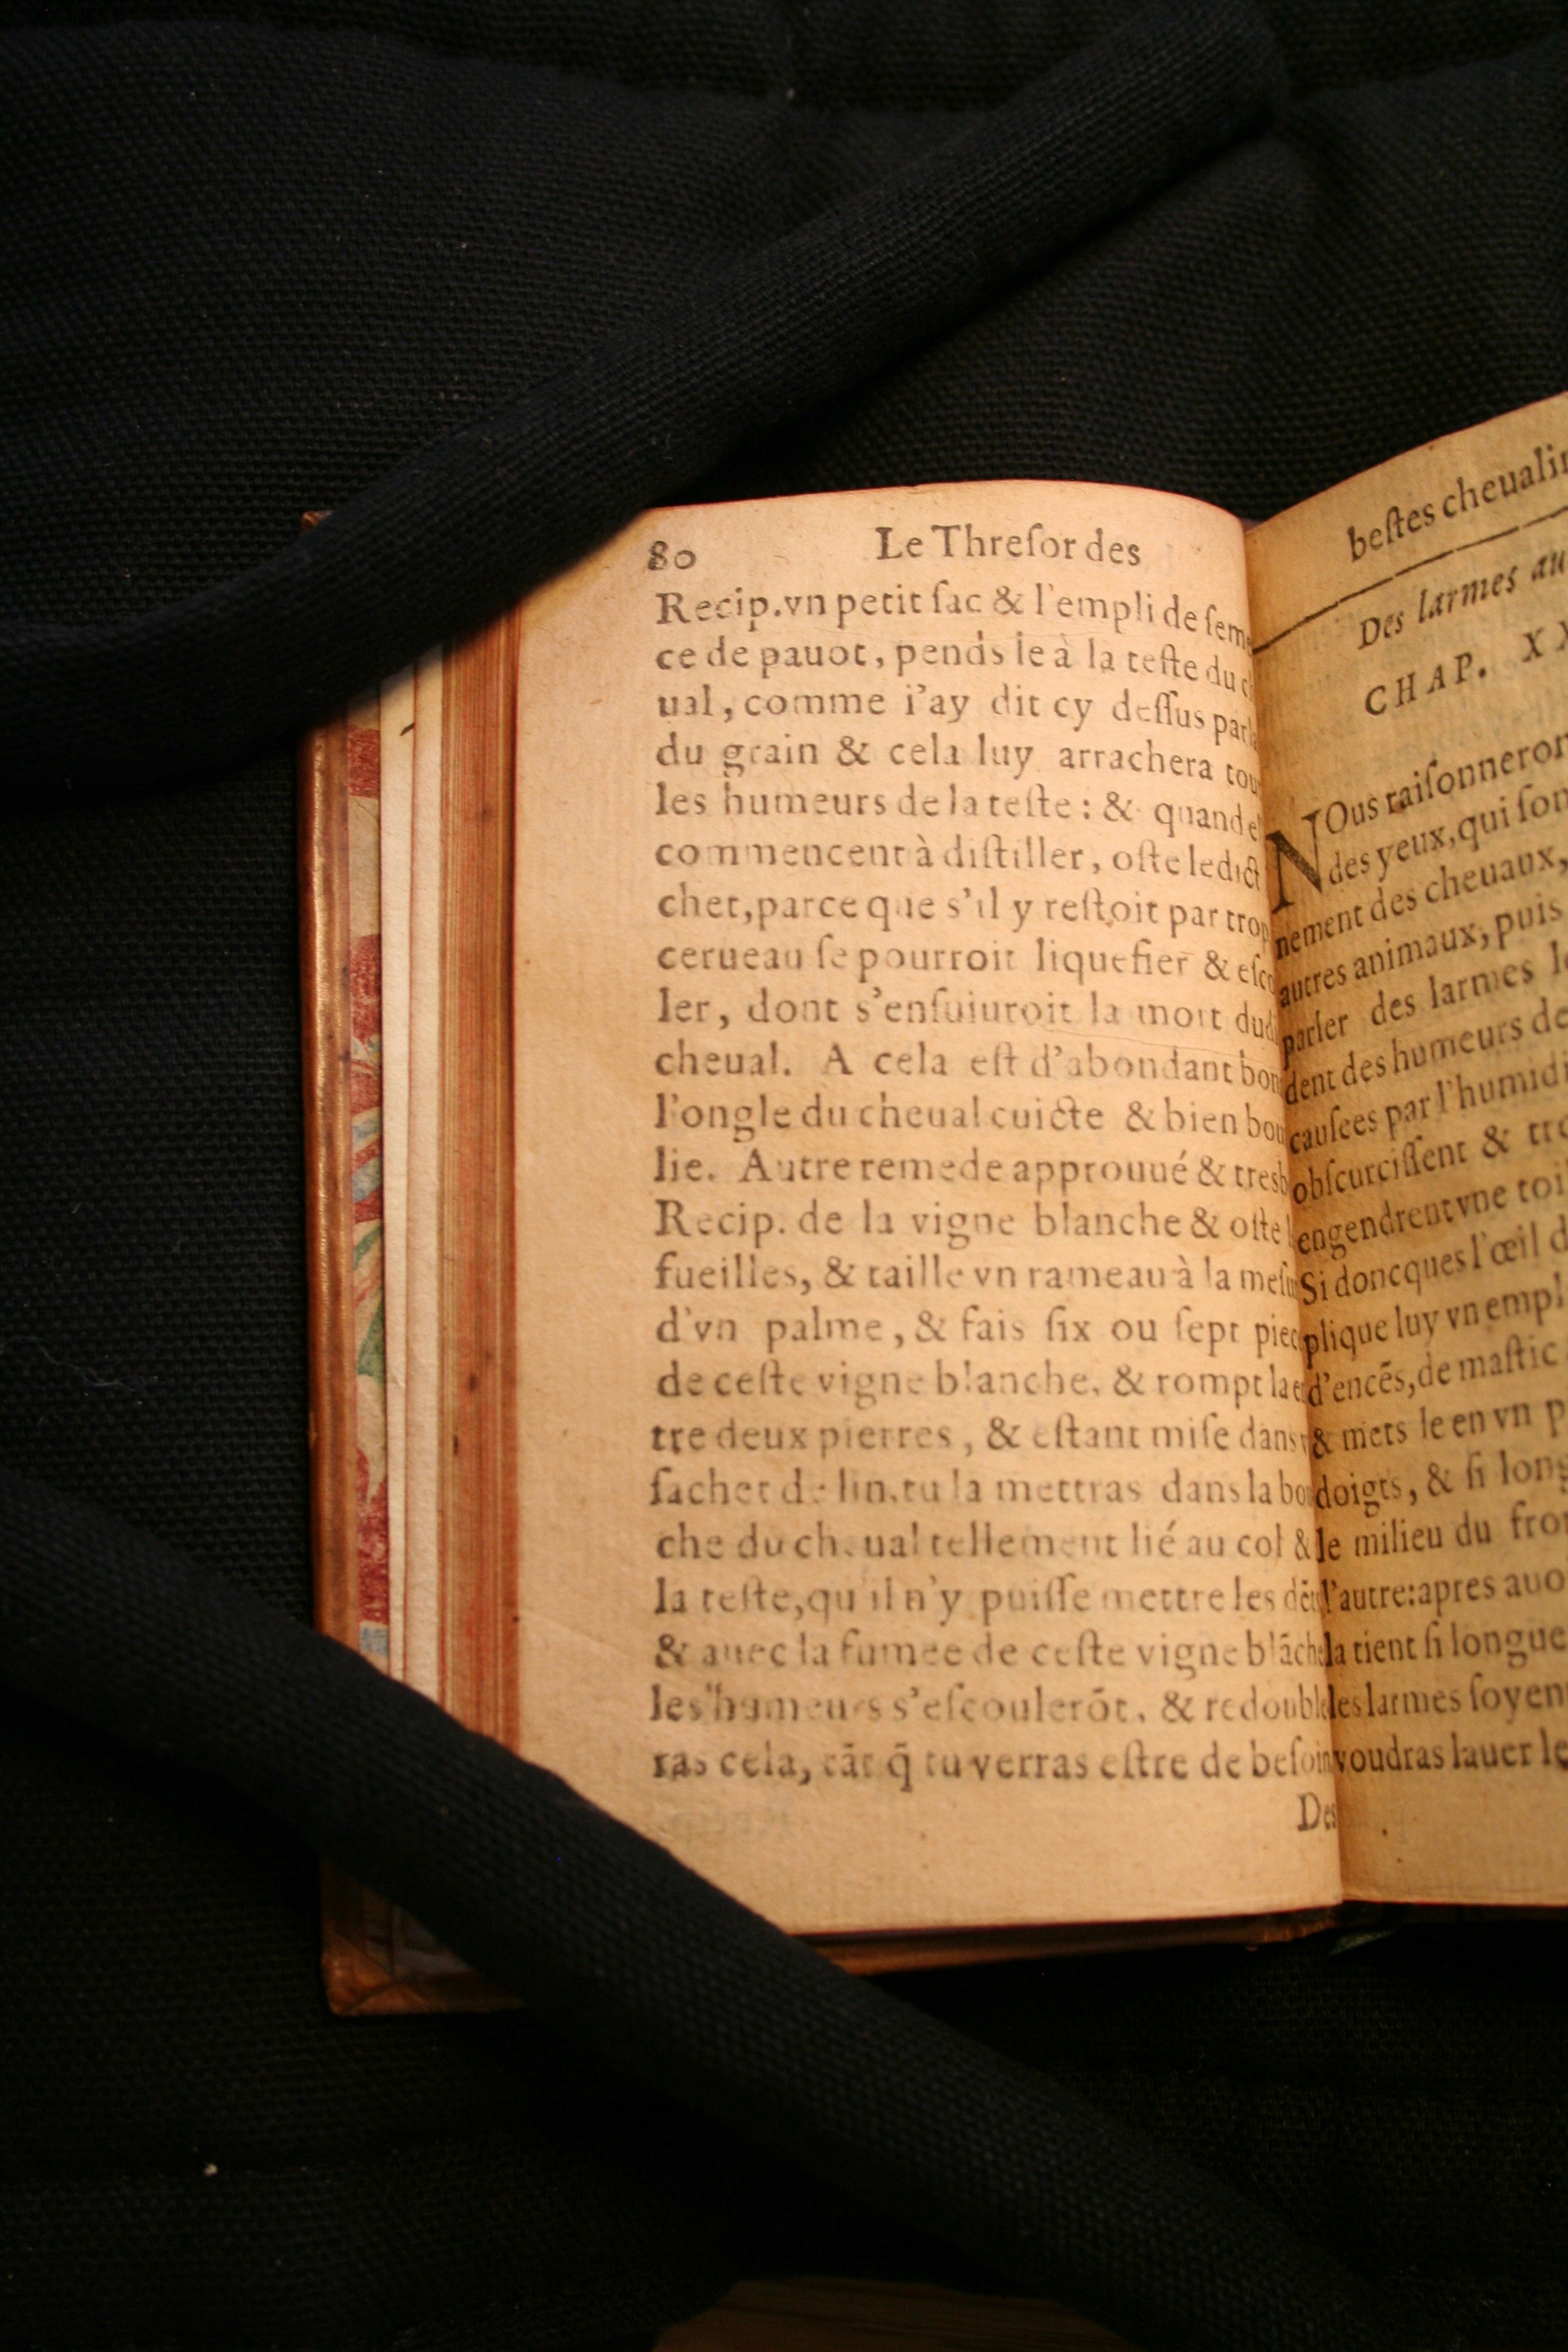 80 Le Threſor des
Recip. vn petit ſac & l'empli de ſeme
ce de pauot, pends le à la teſte du
ual, comme i'ay dit cy deſſus par
du grain & cela luy arrachera tou
les humeurs de la teſte: & quand e
commencent à diſtiller, oſte ledict
chet, parce que s'il y reſtoit par trop
cerueau ſe pourroit liquefier & eſco
ler, dont s'enſuiuroit la mort dud
cheual. A cela eſt d'abondant bon
l'ongle du cheual cuicte & bien bou
lie. Autre remede approuué & tresb
Recip. de la vigne blanche & oſte
fueilles, & taille vn rameau à la meſu
d'vn palme, & fais ſix ou ſept piec
de ceſte vigne blanche, & rompt la e
tre deux pierres, & eſtant miſe dans
ſachet de lin, tu la mettras dans la bou
che du cheual tellement lié au col &
la teſte, qu'il n'y puiſſe mettre les dēt
& auec la fumee de ceſte vigne blāche
les humeurs s'eſcoulerōt, & redouble
ras cela, tāt q̄ tu verras eſtre de beſoin
Des
beſtes cheualin
Des larmes au
CHAP. XX
NOus raiſonneron
des yeux, qui ſon
nement des cheuaux,
autres animaux, puis
parler des larmes le
dent des humeurs de
cauſees par l'humidi
obſcurciſſent & tro
engendrent vne toil
Si doncques l'œil d
plique luy vn empl
d'encēs, de maſtic
& mets le en vn p
doigts, & ſi long
le milieu du fron
l'autre: apres auo
la tient ſi longue
les larmes ſoyent
voudras lauer le